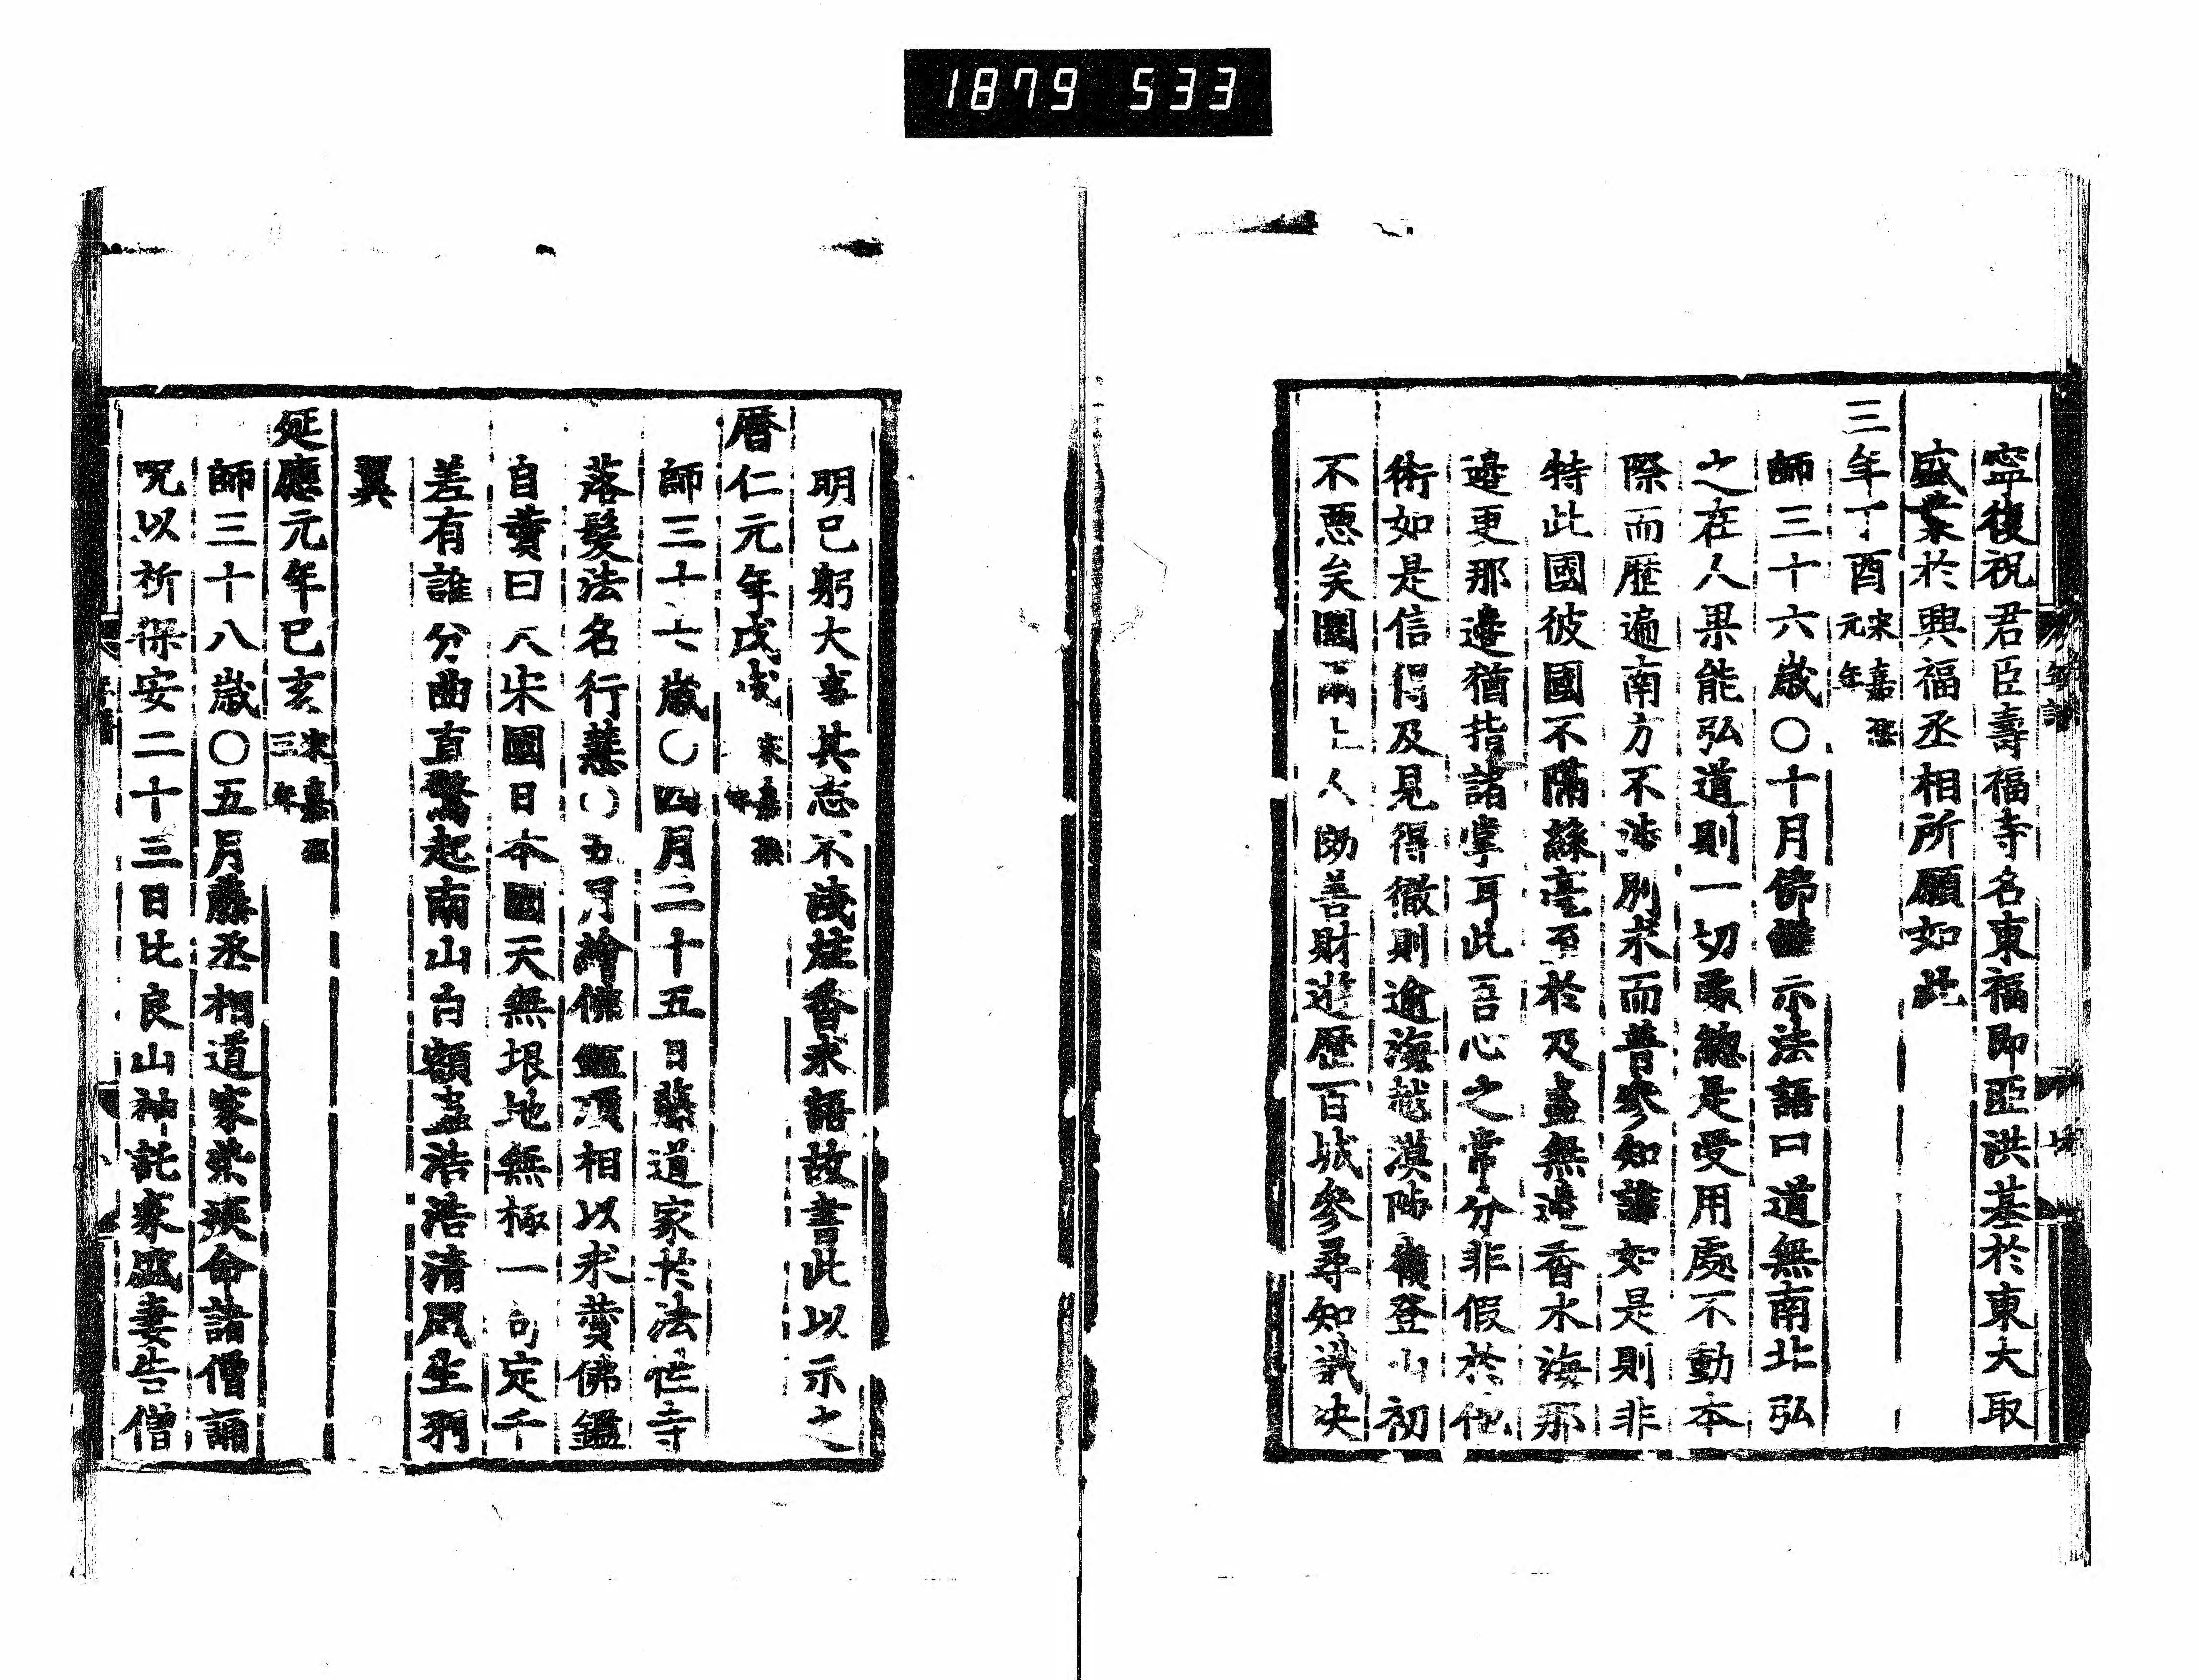 1879 533
寧復祝君臣壽福寺名東福即亞洪基於東大取
盛業於興福丞相所願如此
三年丁酉宋嘉熙元年
師三十六歲〇十月佛鑑示法語曰道無南北弘
之在人果能弘道則一切處總是受用處不動本
際而歷遍南方不涉別求而普參知識如是則非
特此國彼國不隔絲毫至於及盡無邊香水海那
邊更那邊猶指諸掌耳此吾心之常分非假於他
術如是信得及見得徹則逾海越漠陟嶺登山初
不惡矣圓爾上人効善財遊歷百城參尋知識決
明己躬大事其志不淺炷香求語故書此以示之
曆仁元年戊戌宋嘉熙二年
師三十七歲〇四月二十五日藤道家於法性寺
落髮法名行慧〇五月繪佛鑑頂相以求贊佛鑑
自贊曰大宋國日本國天無垠地無極一句定千
差有誰分曲直驚起南山白額蟲浩浩清風生羽
翼
延應元年己亥宋嘉熙三年
師三十八歲〇五月藤丞相道家染疾命諸僧誦
咒以祈保安二十三日比良山神託家盛妻告僧